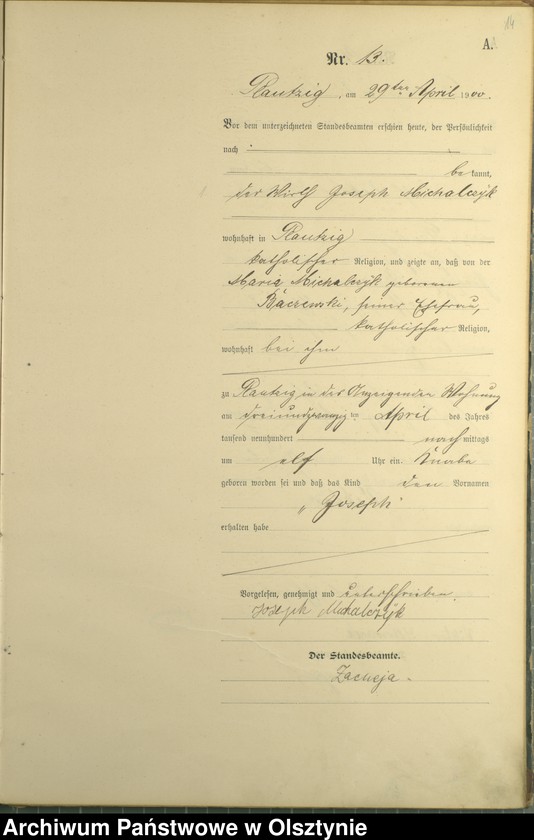 14
A.
Nr. 13.
Plautzig, am 29ten April 1900.
Vor dem unterzeichneten Standesbeamten erschien heute, der Persönlichkeit
nach
be kannt,
der Wirth Joseph Michalczÿk
wohnhaft in Plautzig
katholischer Religion, und zeigte an, daß von der
Maria Michalczÿk geborenen
Baczewski, seiner Ehefrau,
katholischer Religion,
wohnhaft bei ihm
zu Plautzig in des Anzeigenden Wohnung
am dreiundzwanzig ten April des Jahres
tausend neunhundert nach mittags
um elf Uhr ein Knabe
geboren worden sei und daß das Kind den Vornamen
„Joseph"
erhalten habe
Vorgelesen, genehmigt und unterschrieben.
Joseph Michalczÿk
Der Standesbeamte.
Zacheja.
Archiwum Państwowe w Olsztynie